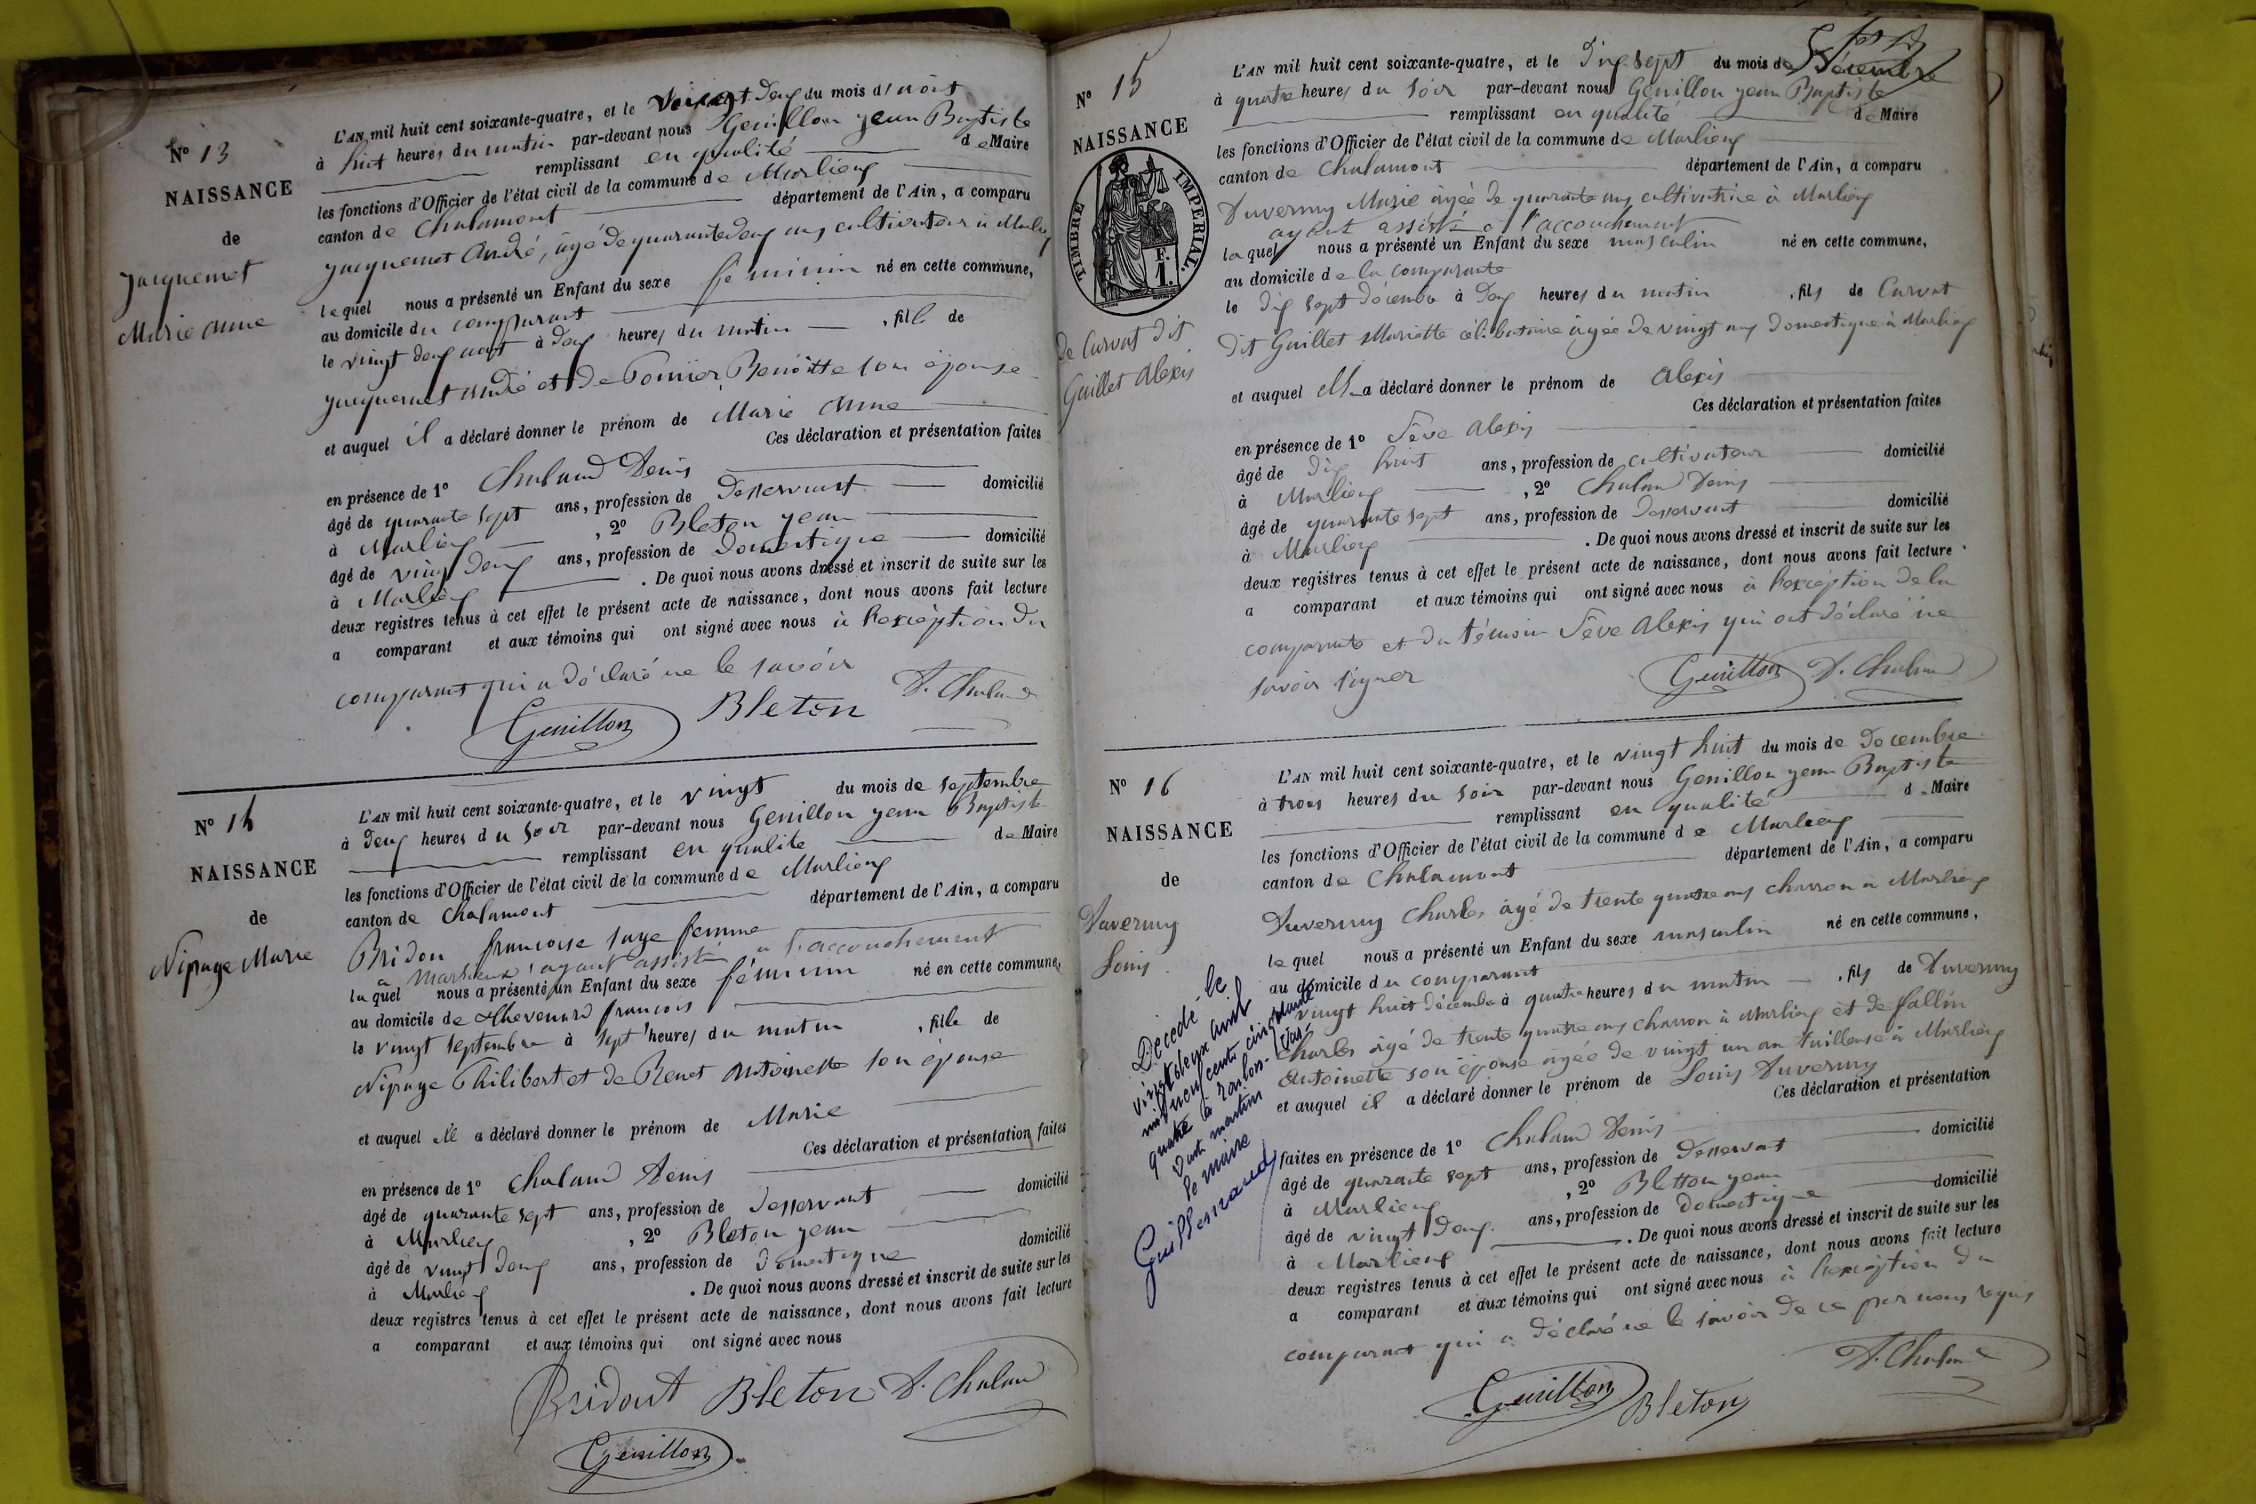 N° 13
NAISSANCE
de
Jacquemet
Marie Anne
L'AN mil huit cent soixante-quatre, et le vingt deux du mois d'août
à huit heures du matin par-devant nous Genillon jean Baptiste
remplissant en qualité de Maire
les fonctions d'Officier de l'état civil de la commune de Marlieux
canton de Chalamont département de l'Ain, a comparu
Jacquemet André, âgé de quarante deux ans cultivateur à Marlieux
lequel nous a présenté un Enfant du sexe féminin né en cette commune,
au domicile du comparant
le vingt deux août à deux heures du matin , fille de
Jacquemet André et de Benoitte son épouse
et auquel il a déclaré donner le prénom de Marie Anne
Ces déclaration et présentation faites
en présence de 1° Chaland Denis
âgé de quarante sept ans, profession de Desservant domicilié
à Marlieux , 2° Bleton jean
âgé de vingt deux ans, profession de Domestique domicilié
à Marlieux . De quoi nous avons dressé et inscrit de suite sur les
deux registres tenus à cet effet le présent acte de naissance, dont nous avons fait lecture
a comparant et aux témoins qui ont signé avec nous à l'exception du
comparant qui a déclaré ne le savoir
Genillon Bleton D. Chaland
N° 14
NAISSANCE
de
Nipage Marie
L'AN mil huit cent soixante-quatre, et le vingt du mois de septembre
à deux heures du soir par-devant nous Genillon jean Baptiste
remplissant en qualité de Maire
les fonctions d'Officier de l'état civil de la commune de Marlieux
canton de Chalamont département de l'Ain, a comparu
Bridon francoise sage femme
a Marlieux ayant assisté a l'accouchement
laquel nous a présenté un Enfant du sexe féminin né en cette commune,
au domicile de Thevenard françois
le vingt septembre à sept heures du matin , fille de
Nipage Philibert et de Renot Antoinette son épouse
et auquel elle a déclaré donner le prénom de Marie
Ces déclaration et présentation faites
en présence de 1° Chaland Denis
âgé de quarante sept ans, profession de Desservant domicilié
à Marlieux , 2° Bleton jean
âgé de vingt deux ans, profession de domestique domicilié
à Marlieux . De quoi nous avons dressé et inscrit de suite sur les
deux registres tenus à cet effet le présent acte de naissance, dont nous avons fait lecture
a comparant et aux témoins qui ont signé avec nous
Bridont Bleton D. Chaland
Genillon
N° 15
NAISSANCE
TIMBRE IMPERIAL.
1 F.
de Curvat dit
Guillet Alexis
L'AN mil huit cent soixante-quatre, et le dix sept du mois de Décembre
à quatre heures du soir par-devant nous Genillon jean Baptiste
remplissant en qualité de Maire
les fonctions d'Officier de l'état civil de la commune de Marlieux
canton de Chalamont département de l'Ain, a comparu
Duvernay Marie âgée de quarante ans cultivatrice à Marlieux
ayant assisté à l'accouchement
laquel nous a présenté un Enfant du sexe masculin né en cette commune,
au domicile de la comparante
le dix sept décembre à deux heures du matin , fils de Curvat
dit Guillet Mariette célibataire âgée de vingt ans domestique à Marlieux
et auquel elle a déclaré donner le prénom de Alexis
Ces déclaration et présentation faites
en présence de 1° Sève Alexis
âgé de dix huit ans, profession de cultivateur domicilié
à Marlieux , 2° Chaland Denis
âgé de quarante sept ans, profession de Desservant domicilié
à Marlieux . De quoi nous avons dressé et inscrit de suite sur les
deux registres tenus à cet effet le présent acte de naissance, dont nous avons fait lecture
a comparant et aux témoins qui ont signé avec nous à l'exception de la
comparante et du témoin Sève Alexis qui ont déclaré ne
savoir signer
Genillon D. Chaland
N° 16
NAISSANCE
de
Duvernay
Louis
Décédé le
vingt deux avril
mil neuf cent cinquante
quatre à
le maire
L'AN mil huit cent soixante-quatre, et le vingt huit du mois de Decembre
à trois heures du soir par-devant nous Genillon jean Baptiste
remplissant en qualité de Maire
les fonctions d'Officier de l'état civil de la commune de Marlieux
canton de Chalamont département de l'Ain, a comparu
Duvernay Charles âgé de trente quatre ans charron a Marlieux
lequel nous a présenté un Enfant du sexe masculin né en cette commune,
au domicile du comparant
le vingt huit décembre à quatre heures du matin , fils de Duvernay
Charles âgé de trente quatre ans charron à Marlieux et de fallin
Antoinette son épouse agée de vingt un an tailleuse à Marlieux
et auquel il a déclaré donner le prénom de Louis Duvernay
Ces déclaration et présentation
faites en présence de 1° Chaland Denis
âgé de quarante sept ans, profession de Desservant domicilié
à Marlieux , 2° Bletton jean
âgé de vingt deux ans, profession de Domestique domicilié
à Marlieux . De quoi nous avons dressé et inscrit de suite sur les
deux registres tenus à cet effet le présent acte de naissance, dont nous avons fait lecture
a comparant et aux témoins qui ont signé avec nous à l'exception du
comparant qui a déclaré ne le savoir de ce par nous requis
Genillon Bleton D. Chaland